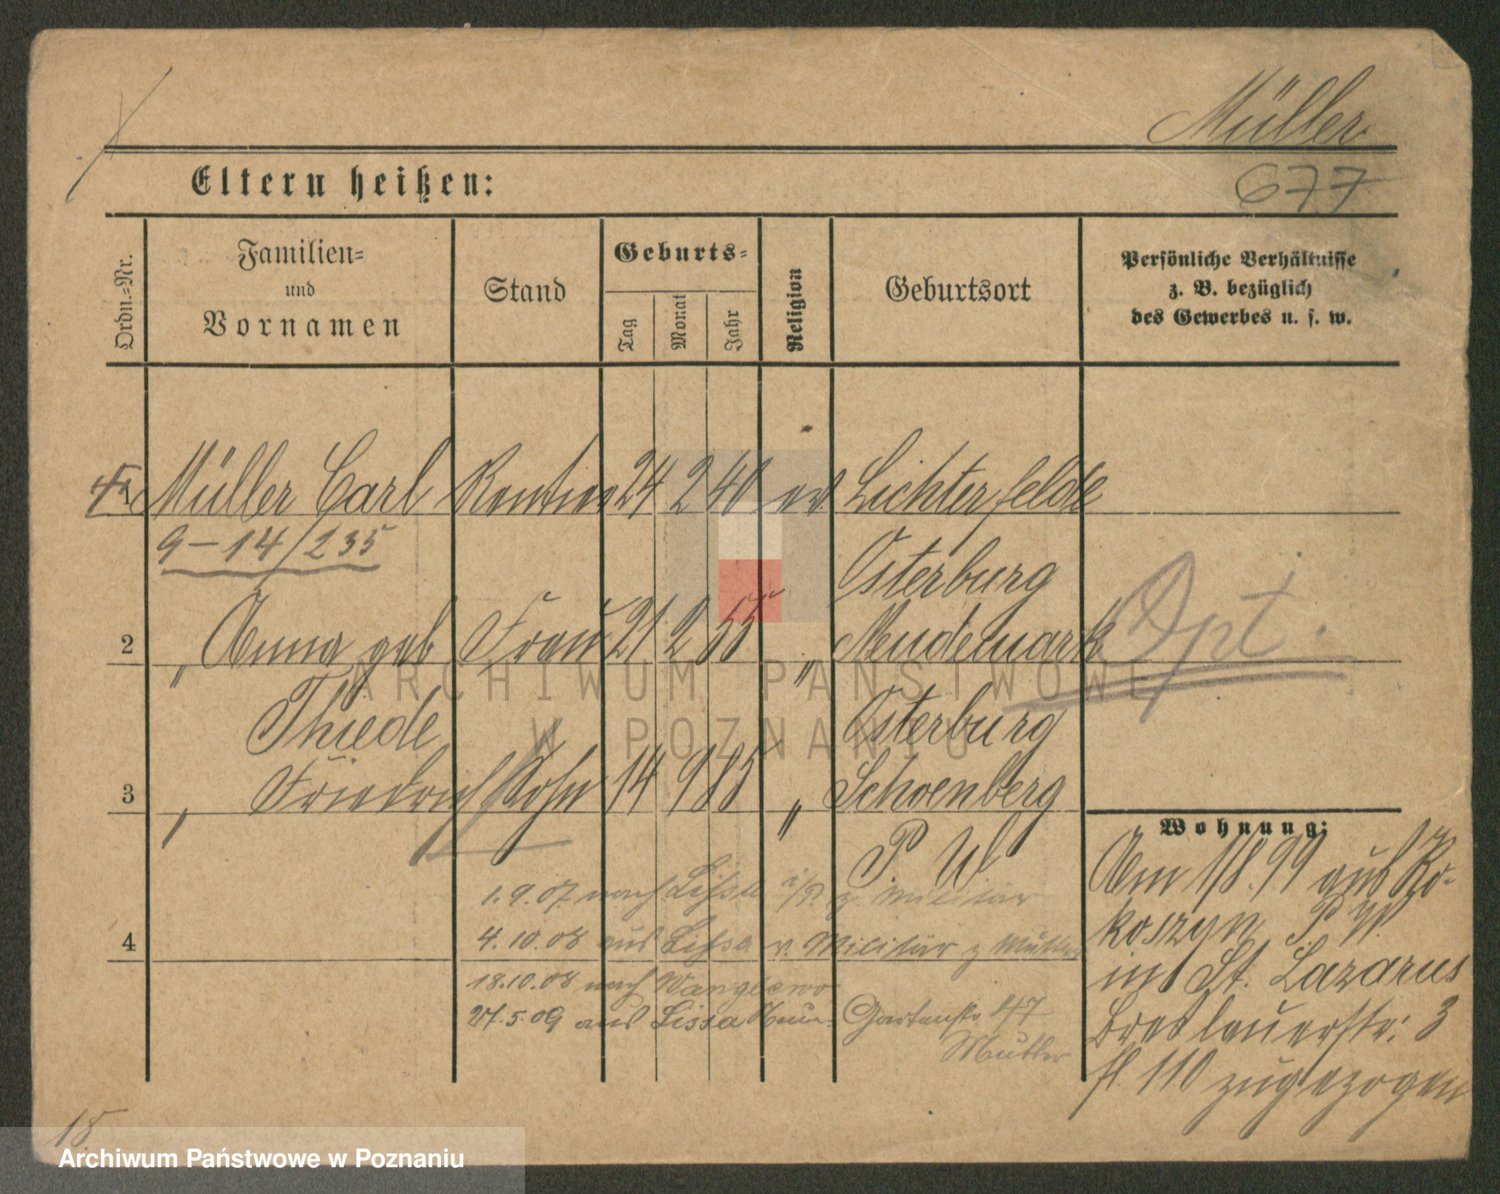 Müller
677
Eltern heißen:
Ordn.-Nr.
Familien-
und
Vornamen
Stand
Geburts-
Tag
Monat
Jahr
Religion
Geburtsort
Persönliche Verhältnisse
z. B. bezüglich
des Gewerbes u. s. w.
Müller Carl Rentier 24 2 40 ev Lichterfelde
9-14/235
Osterburg
2 " Anna geb Frau 21 2 55 " Meudemark
Opt.
Thiede
Osterburg
3 " Friedrich Sohn 14 9 85 " Schoenberg
P. W
Wohnung:
Am 1/8.99 aus Ro-
koszyn P W.
in St. Lazarus
Breslauerstr: 3
fl 110 zugezogen
1.9.07 nach Lissa i/P z Militär
4
4.10.08 aus Lissa v. Militär z Mutter
18.10.08 nach
27.5.09 aus Lissa Gartenstr 47
Mutter
18
ARCHIWUM PAŃSTWOWE
W POZNANIU
Archiwum Państwowe w Poznaniu